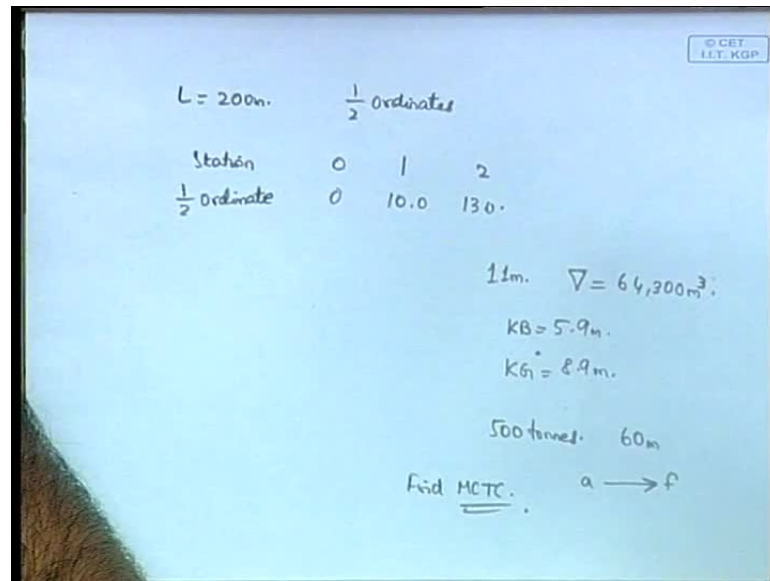 © CET
I.I.T. KGP
L = 200m. 1/2 ordinates
Station 0 1 2
1/2 ordinate 0 10.0 130.
11m. ∇ = 64,300m³.
KB = 5.9m.
KG = 8.9m.
500 tonnes. 60m
Find MCTC. a → f